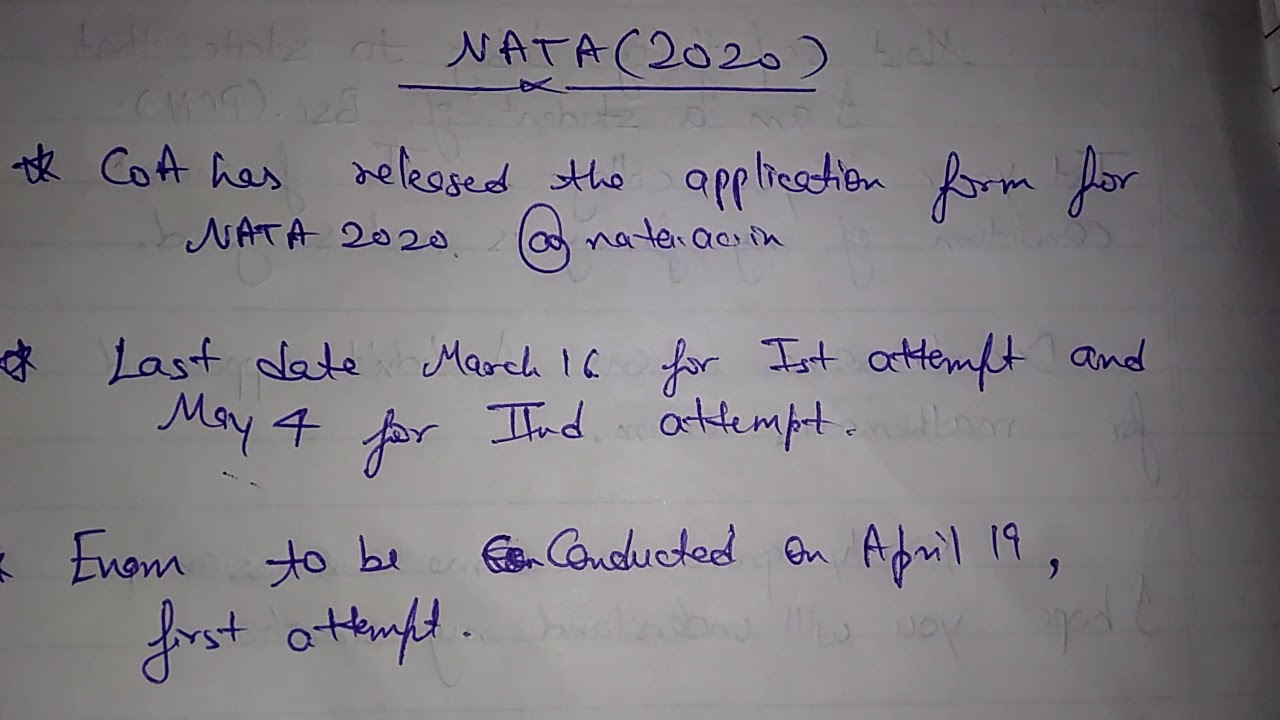 NATA (2020)
* CoA has released the application form for
NATA 2020. @ nata.ac.in
* Last date March 16 for Ist attempt and
May 4 for IInd attempt.
* Exam to be Conducted on April 19,
first attempt.